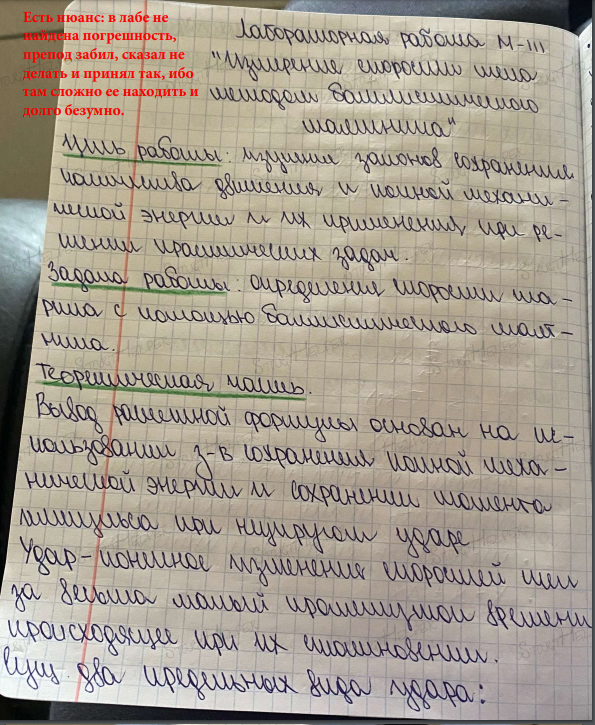 Есть нюанс: в лабе не
найдена погрешность,
препод забил, сказал не
делать и принял так, ибо
там сложно ее находить и
долго безумно.
Лабораторная работа М-III
"Измерение скорости тела
методом баллистического
маятника"
Цель работы: изучения законов сохранения
количества движения и полной механи-
ческой энергии и их применения при ре-
шении практических задач.
Задача работы: определение скорости ша-
рика с помощью баллистического маят-
ника.
Теоретическая часть.
Вывод расчетной формулы основан на ис-
пользовании з-в сохранения полной меха-
нической энергии и сохранении момента
импульса при неупругом ударе
Удар-конечное изменение скоростей тел
за весьма малый промежуток времени
происходящее при их столкновении.
Сущ. два предельных вида удара: